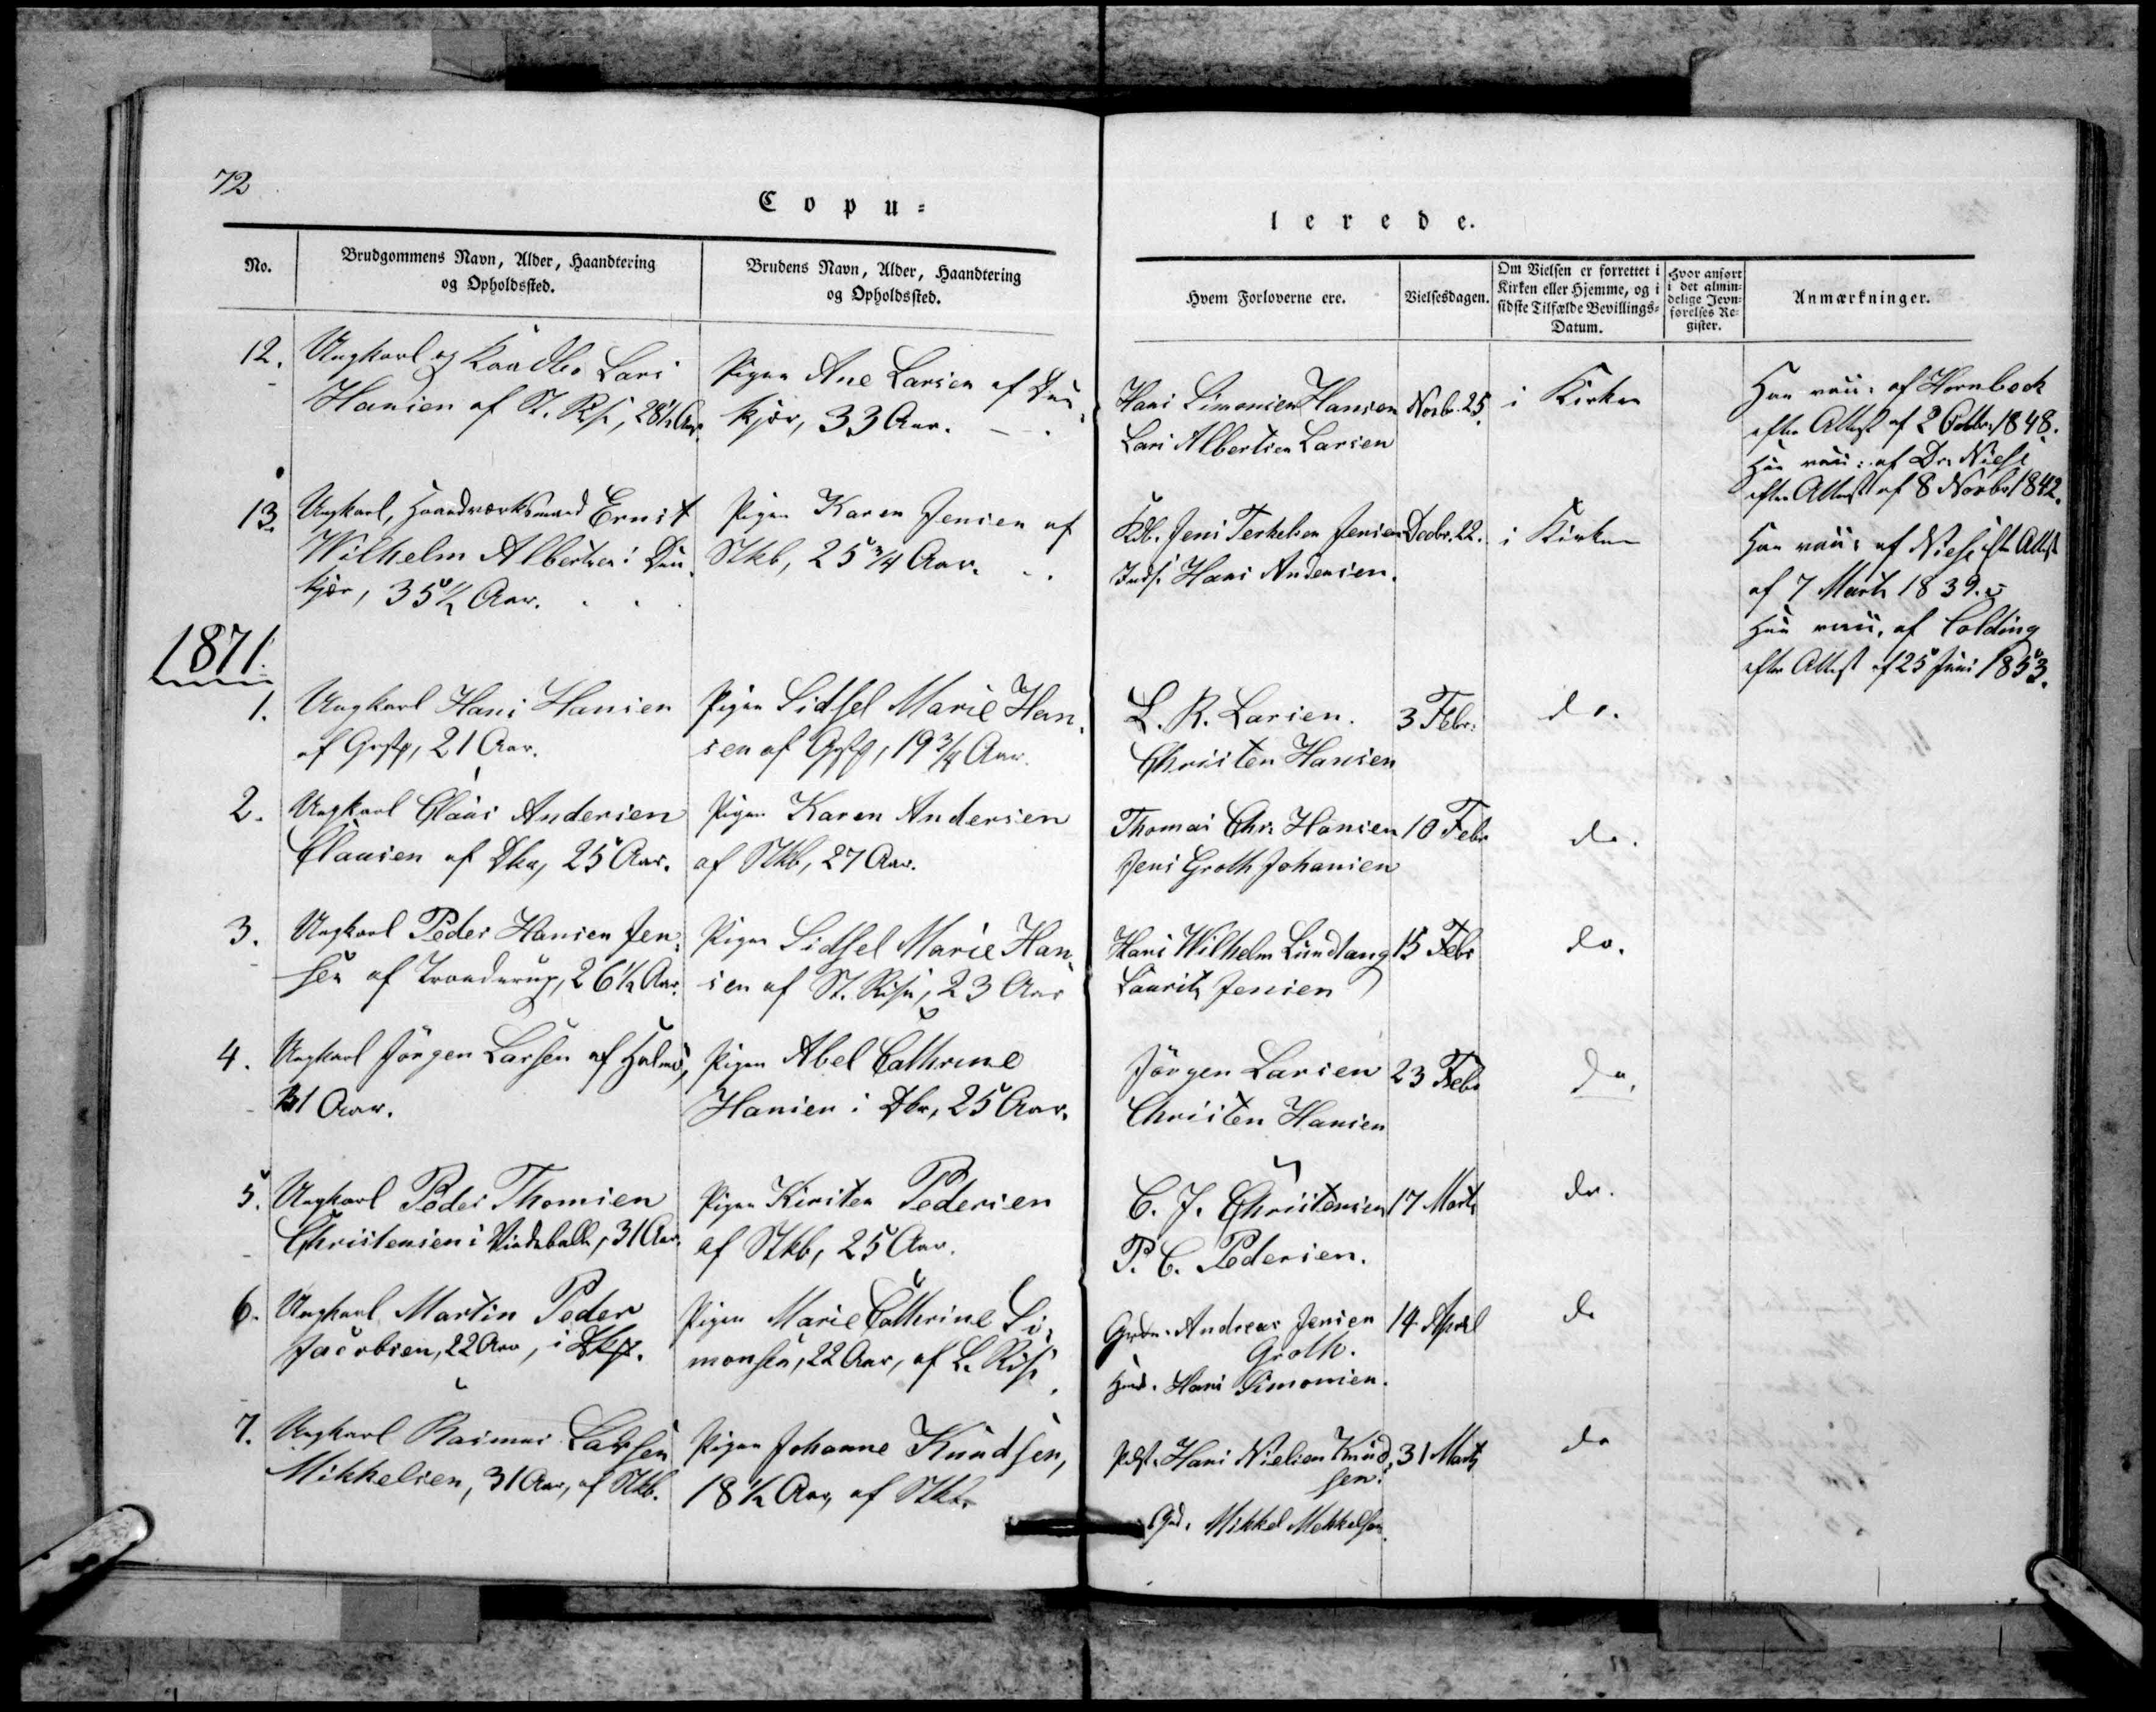 72
Copu=
lerede.
No.
Brudgommens Navn, Alder, Haandtering
og Opholdssted.
Brudens Navn, Alder, Haandtering
og Opholdssted.
Hvem Forloverne ere.
Vielsesdagen.
Om Vielsen er forrettet i
Kirken eller Hjemme, og i
sidste Tilfælde Bevillings-
Datum.
Hvor anført
i det almin-
delige Jevn-
førelses Re-
gister.
Anmærkninger.
12.
Ungkarl og Lars
Hansen af St. Rise, 28½ Aar.
Pigen Ane Larsen af Dun-
kjær, 33 Aar.
Hans Simonsen Hansen
Lars Albertsen Larsen
Novbr. 25.
i Kirken
Han vacc. af Hornbeck
efter Attest af 2 Octbr. 1848.
Hun vacc. af Dr. Niese
efter Attest af 8 Novbr. 1842.
13.
Ungkarl, Haandværksmand Ernst
Wilhelm Albertsen i Dun-
kjær, 35½ Aar.
Pigen Karen Jensen af
Stkb, 25 3/4 Aar.
Jens Terkelsen Jensen
Inds. Hans Andersen.
Decbr. 22.
i Kirken
Han vacc. af Niese efter Attest
af 7 Marts 1839.
Hun vacc. af Colding
efter Attest af 25 Juni 1853.
1871.
1.
Ungkarl Hans Hansen
af, 21 Aar.
Pigen Sidsel Marie Han-
sen af, 19 3/4 Aar.
L. R. Larsen.
Christen Hansen
3 Febr.
do.
2.
Ungkarl Claus Andersen
Clausen af, 25 Aar.
Pigen Karen Andersen
af Stkb, 27 Aar.
Thomas Chr. Hansen
Jens Groth Johansen
10 Febr
do.
3.
Ungkarl Peder Hansen Jen-
sen af Tranderup, 26½ Aar.
Pigen Sidsel Marie Han-
sen af St. Rise, 23 Aar
Hans Wilhelm Lundtang
Laurits Jensen
15 Febr
do.
4.
Ungkarl Jörgen Larsen af,
31 Aar.
Pigen Abel Cathrine
Hansen i, 25 Aar.
Jörgen Larsen
Christen Hansen
23 Febr
do.
5.
Ungkarl Peder Thomsen
Christensen i Vindeballe, 31 Aar.
Pigen Kirsten Pedersen
af Stkb, 25 Aar.
C. J. Christensen
P. C. Pedersen.
17 Marts
do.
6.
Ungkarl Martin Peder
Jacobsen, 22 Aar, i
Pigen Marie Cathrine Si-
monsen, 22 Aar, af L. Rise
Andreas Jensen
Groth.
Hans Simonsen.
14 April
do
7.
Ungkarl Rasmus Larsen
Mikkelsen, 31 Aar, af Stkb.
Pigen Johanne Knudsen,
18½ Aar, af Stkb.
Hans Nielsen Knud-
sen.
Mikkel Mikkelsen.
31 Marts
do